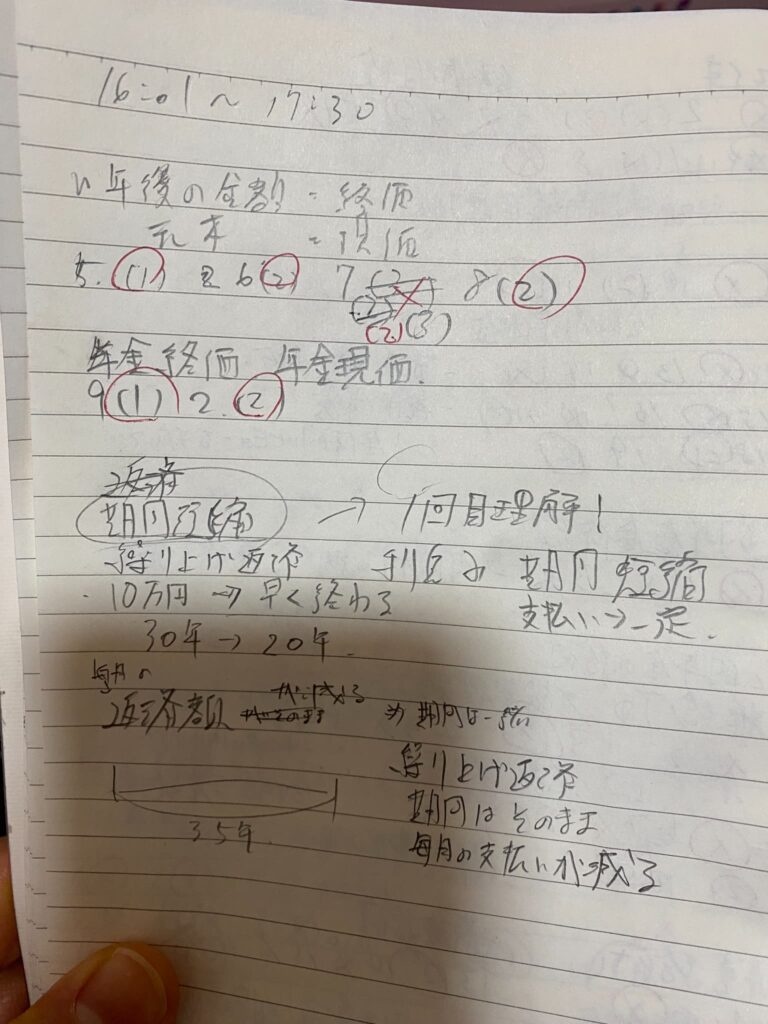 16:01〜17:30
n年後の金額=終価
元本 =現価
5.(1) 6(2) 7 8(2)
(2)
(2)(3)
年金終価 年金現価.
9(1) 2.(2)
返済
期間短縮 → 1回目理解!
繰り上げ返済 利息み 期間短縮
・10万円→早く終わる 支払い→一定.
30年→20年.
毎月の
返済額 が減る
がそのまま ⇒期間は一緒
繰り上げ返済
期間はそのまま
35年.
毎月の支払いが減る